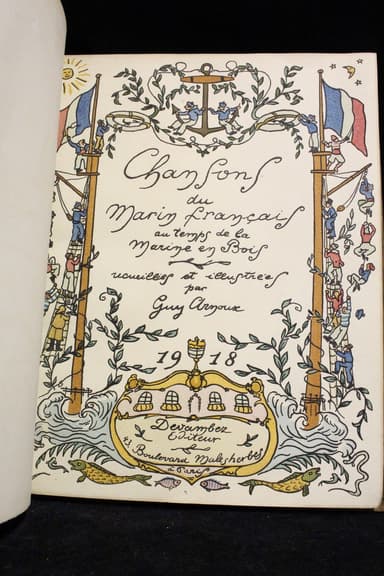 Chansons
du
Marin français
au temps de la
Marine en Bois
recueillies et illustrées
par
Guy Arnoux
1918
Devambez
Editeur
43 Boulevard Malesherbes
à Paris